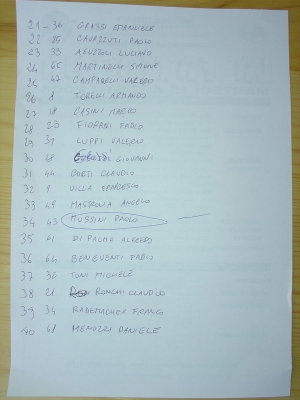 21 - 30 GRASSI EMANUELE
22 26 CAVAZZUTI PAOLO
23 33 AGUZZOLI LUCIANO
24 45 MARTINELLI SIMONE
25 47 CAMPANELLI VALERIO
26 8 TORELLI ARMANDO
27 18 CASINI MARCO
28 23 FIORANI FABIO
29 31 LUPPI VALERIO
30 48 GIOVANNI
31 40 CORTI CLAUDIO
32 9 VILLA FRANCESCO
33 49 MASTRONIA ANGELO
34 43 MUSSINI PAOLO
35 41 DI PALMA ALFREDO
36 44 BENEVENTI FABIO
37 32 TONI MICHELE
38 21 RONCHI CLAUDIO
39 34 RADEMACHER FRANK
40 61 MENOZZI DANIELE